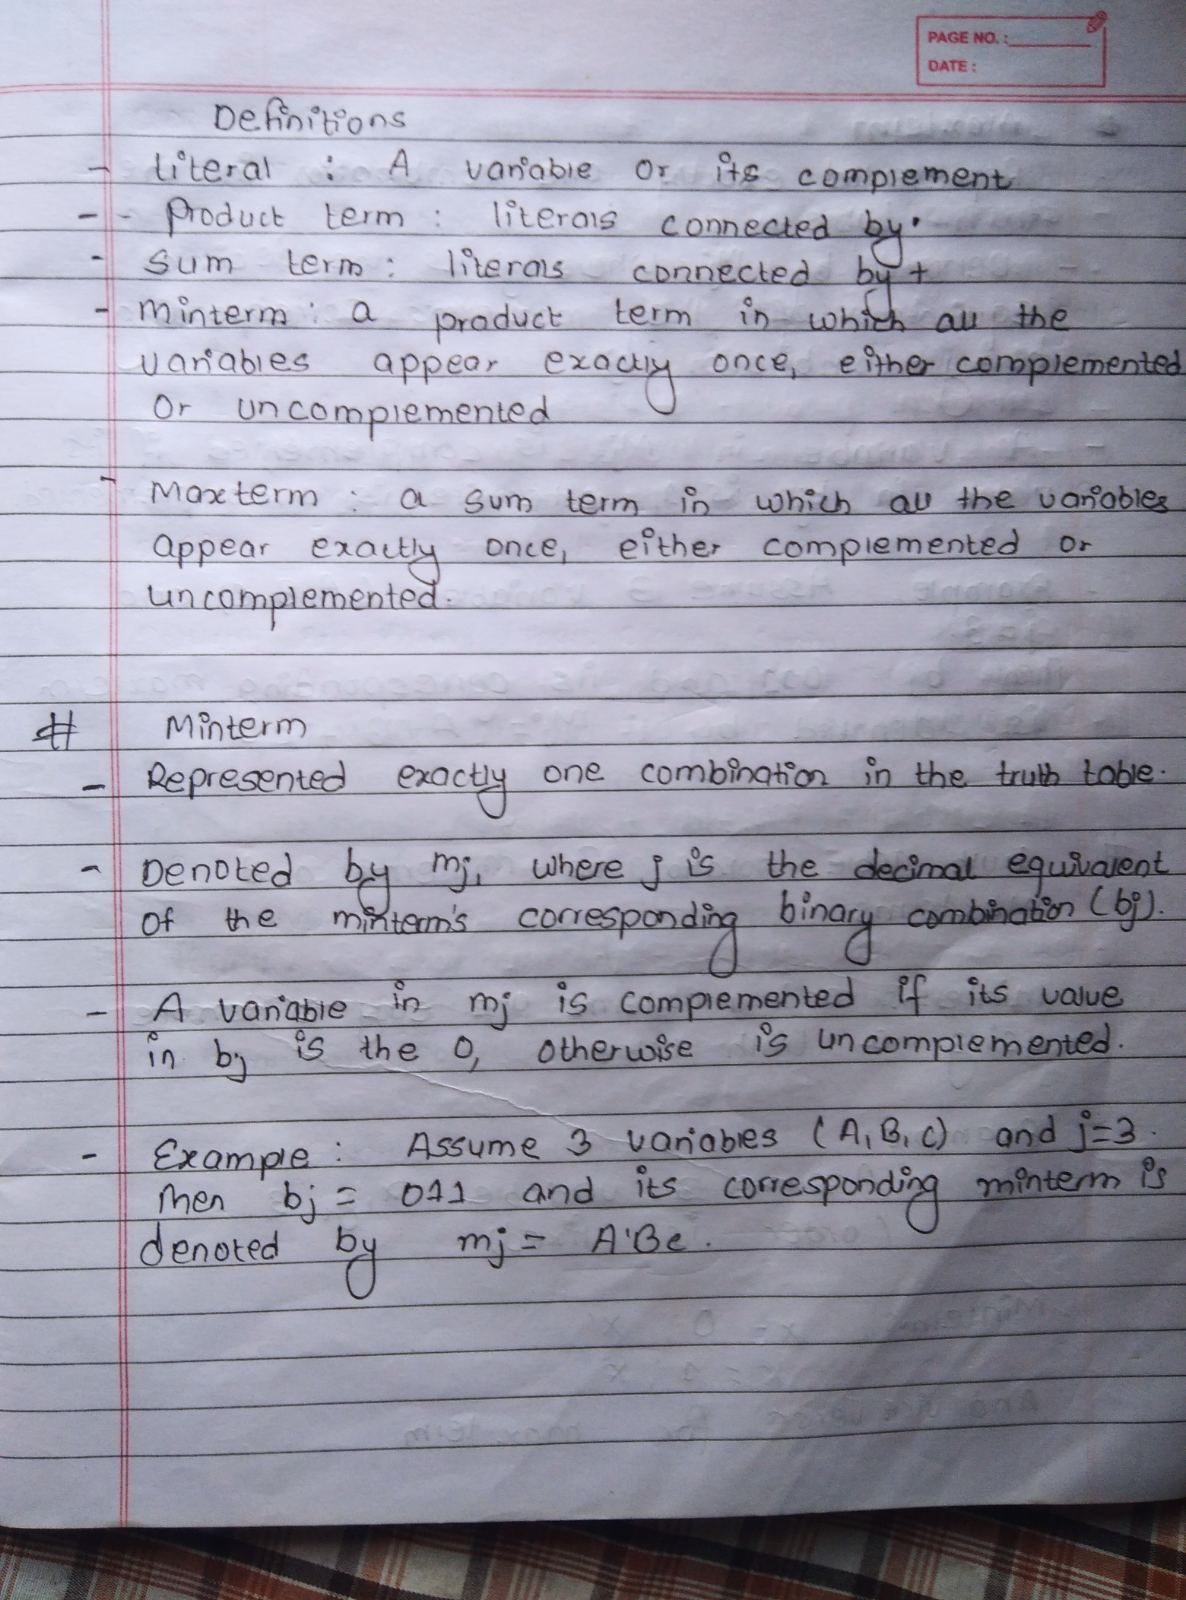 PAGE NO. :
DATE :
Definitions
- literal : A variable or its complement
- - Product term : literals connected by •
- Sum term : literals connected by +
- Minterm : a product term in which all the
variables appear exactly once, either complemented
Or uncomplemented
- Maxterm : a sum term in which all the variables
appear exactly once, either complemented or
uncomplemented.
# Minterm
- Represented exactly one combination in the truth table.
- Denoted by mj, where j is the decimal equivalent
of the minterm's corresponding binary combination (bj).
- A variable in mj is complemented if its value
in bj is the 0, otherwise is uncomplemented.
- Example : Assume 3 variables (A, B, C) and j=3.
Then bj = 011 and its corresponding minterm is
denoted by mj = A'BC.